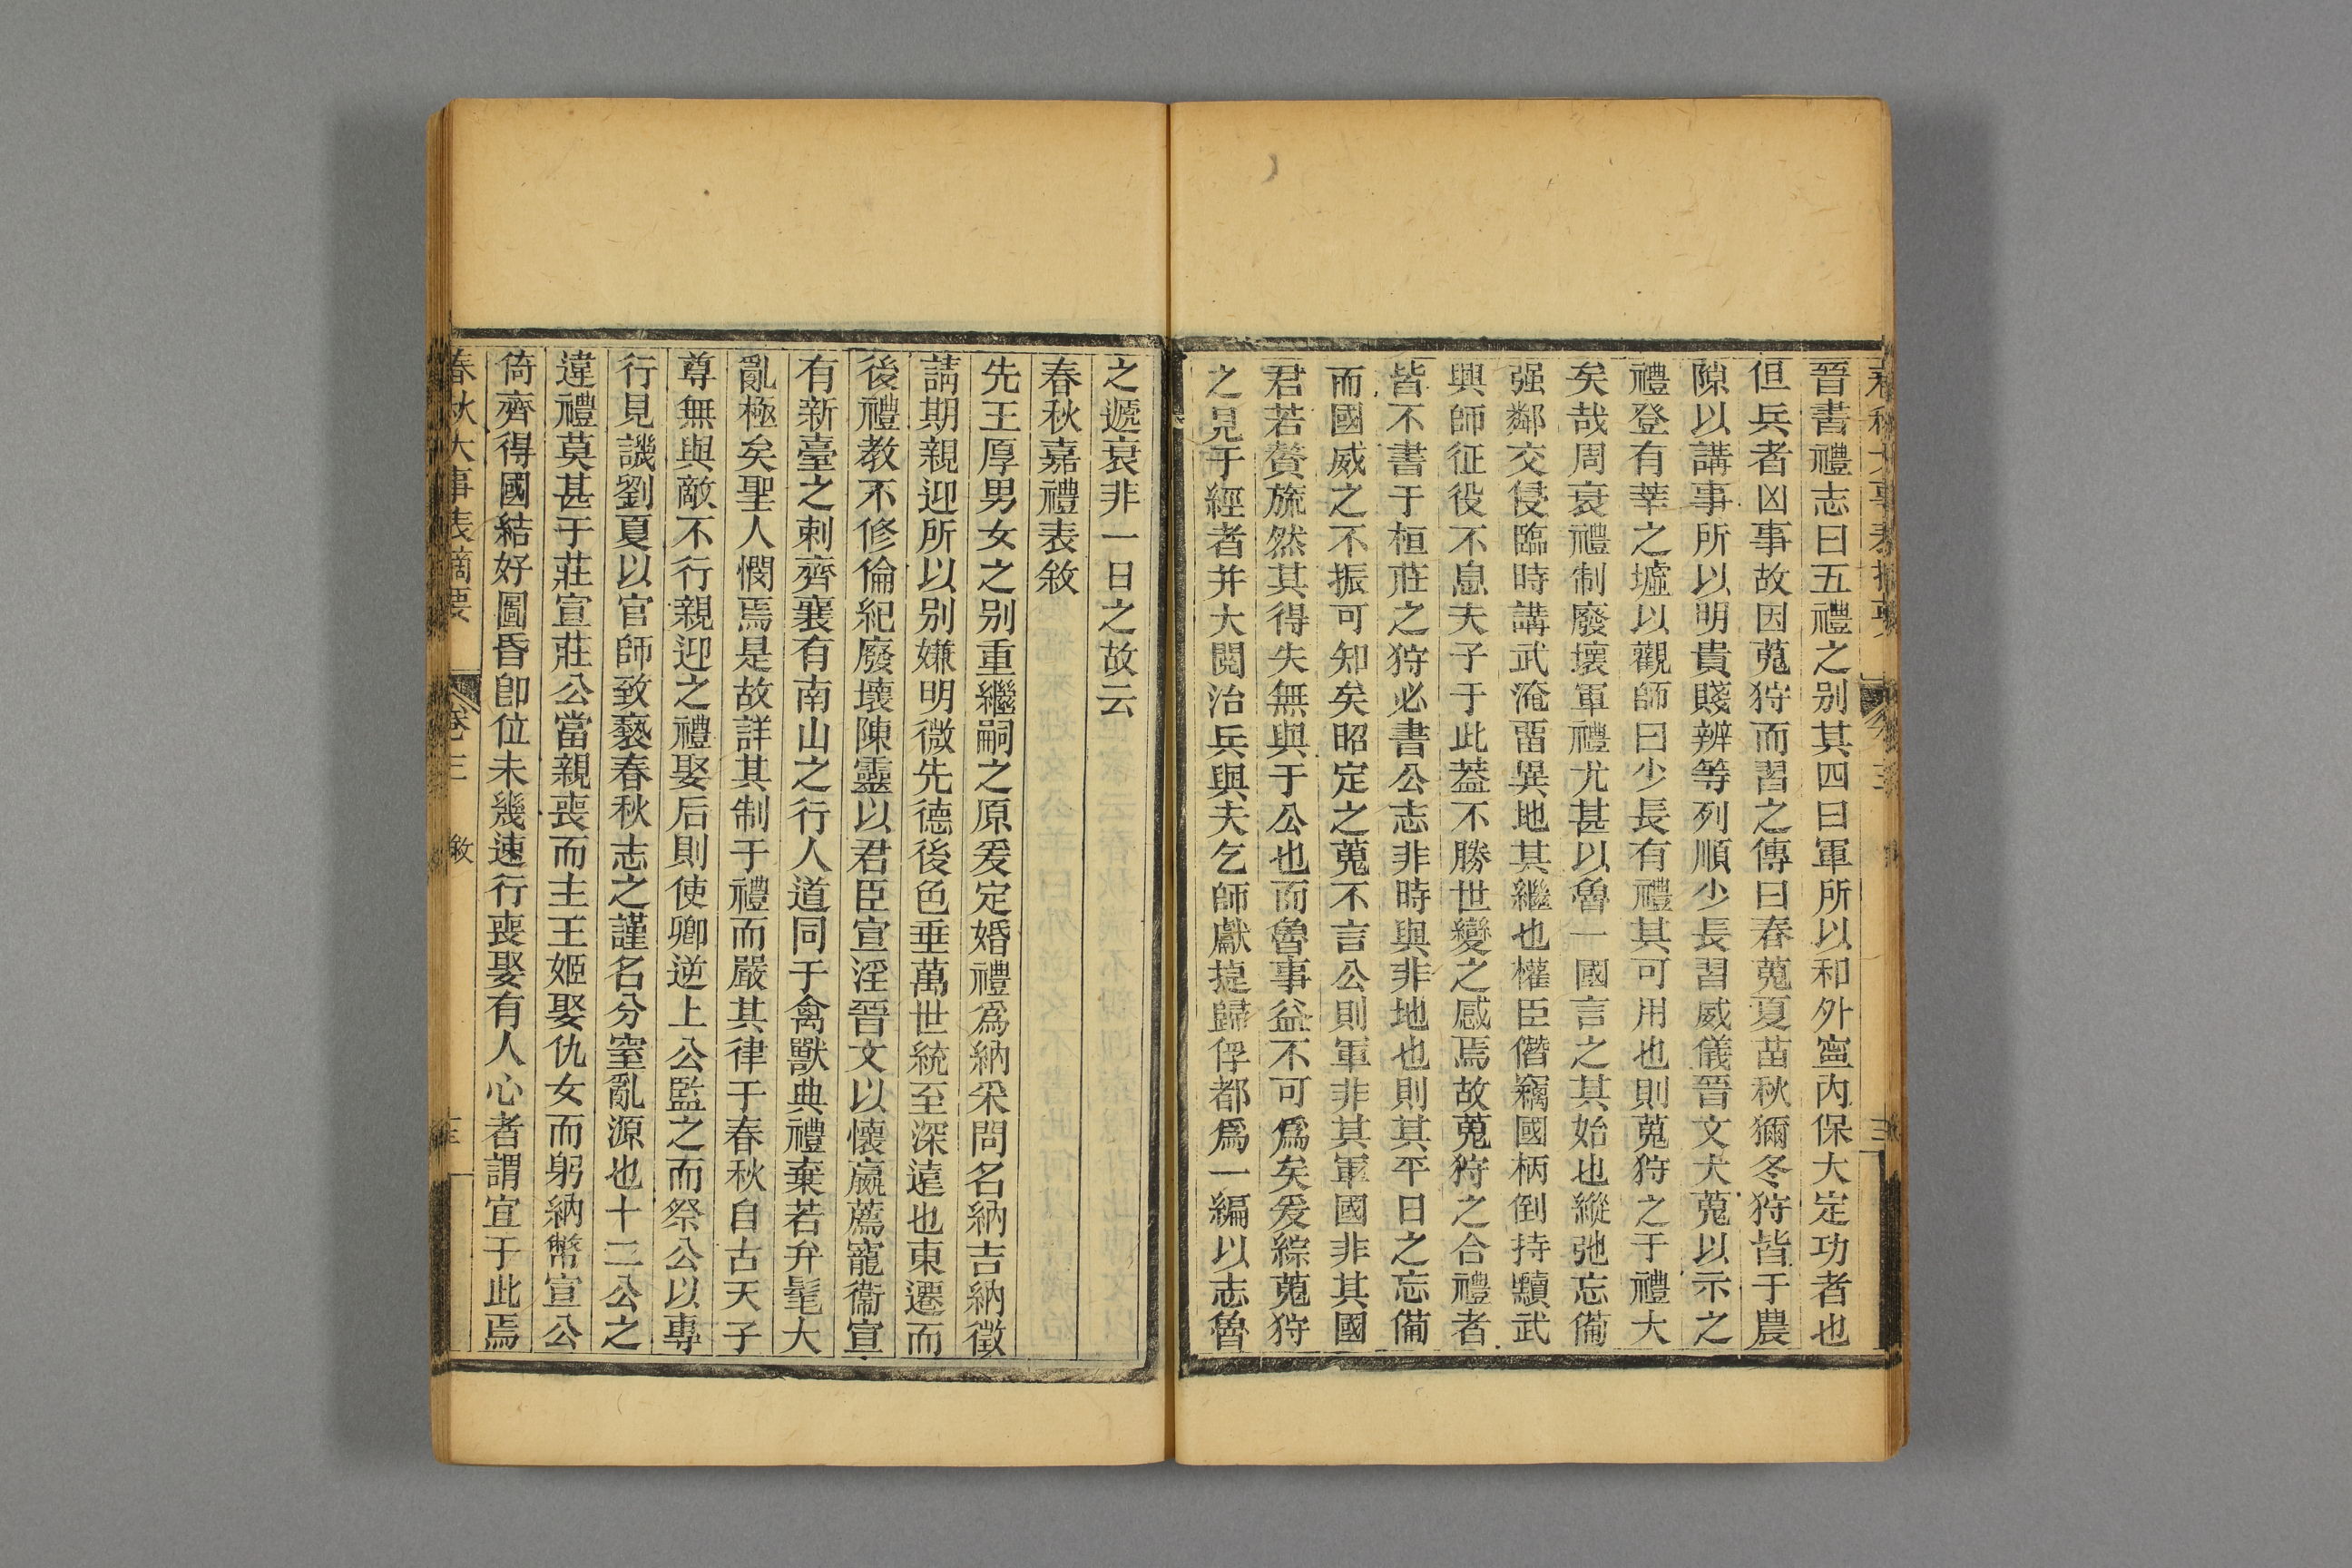 晉書禮志曰五禮之别其四曰軍所以和外寧內保大定功者也
但兵者凶事故因蒐狩而習之傳曰春蒐夏苗秋獮冬狩皆于農
隙以講事所以明貴賤辨等列順少長習威儀晉文大蒐以示之
禮登有莘之墟以觀師曰少長有禮其可用也則蒐狩之于禮大
矣哉周衰禮制廢壞軍禮尤甚以魯一國言之其始也縱弛忘備
强鄰交侵臨時講武淹畱異地其繼也權臣僭竊國柄倒持黷武
興師征役不息夫子于此葢不勝世變之感焉故蒐狩之合禮者
皆不書于桓莊之狩必書公志非時與非地也則其平日之忘備
而國威之不振可知矣昭定之蒐不言公則軍非其軍國非其國
君若贅旒然其得失無與于公也而魯事益不可爲矣爰綜蒐狩
之見于經者并大閱治兵與夫乞師獻捷歸俘都爲一編以志魯
之遞衰非一日之故云
春秋嘉禮表敘
先王厚男女之别重繼嗣之原爰定婚禮爲納采問名納吉納徵
請期親迎所以别嫌明微先德後色垂萬世統至深遠也東遷而
後禮教不修倫紀廢壞陳靈以君臣宣淫晉文以懷嬴薦寵衞宣
有新臺之刺齊襄有南山之行人道同于禽獸典禮棄若弁髦大
亂極矣聖人憫焉是故詳其制于禮而嚴其律于春秋自古天子
尊無與敵不行親迎之禮娶后則使卿逆上公監之而祭公以專
行見譏劉夏以官師致褻春秋志之謹名分窒亂源也十二公之
違禮莫甚于莊宣莊公當親喪而主王姬娶仇女而躬納幣宣公
倚齊得國結好圖昏卽位未幾速行喪娶有人心者謂宜于此焉
春秋大事表摘要 卷三 敘